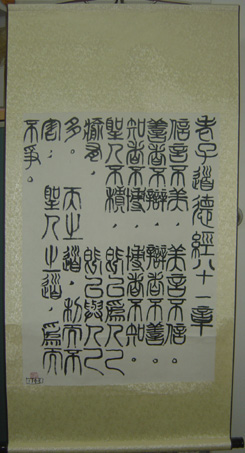 老子道德經八十一章
信言不美，美言不信。
善者不辯，辯者不善。
知者不博，博者不知。
聖人不積，既已爲人己
瘉有，既已與人己
多。天之道，利而不
害；聖人之道，爲而
不爭。